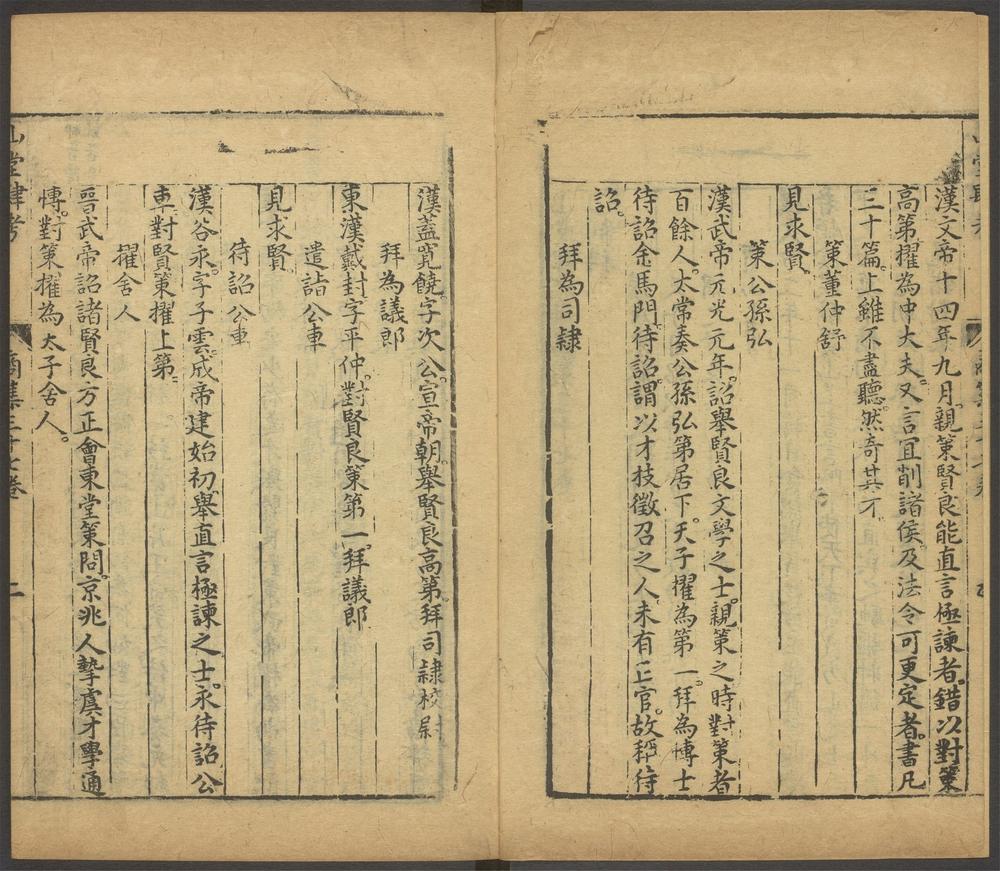 漢文帝十四年九月。親策賢良能直言極諫者。錯以對策
高第擢為中大夫。又言宜削諸侯。及法令可更定者。書凡
三十篇。上雖不盡聽。然奇其才
策董仲舒
見求賢
策公孫弘
漢武帝元光元年。詔舉賢良文學之士。親策之。時對策者
百餘人。太常奏公孫弘第居下。天子擢為第一。拜為博士
待詔金馬門。待詔。謂以才技徵召之人。未有正官。故稱待
詔。
拜為司隸
漢蓋寬饒。字次公。宣帝朝。舉賢良高第。拜司隸校尉
拜為議郎
東漢戴封字平仲。對賢良策第一。拜議郎
遣詣公車
見求賢
待詔公車
漢谷永。字子雲。成帝建始初。舉直言極諫之士。永待詔公
車。對賢策擢上第。
擢舍人
晉武帝詔諸賢良方正會東堂策問。京兆人摯虞才學通
博。對策擢為太子舍人。
山堂肆考
商集三十七卷
二